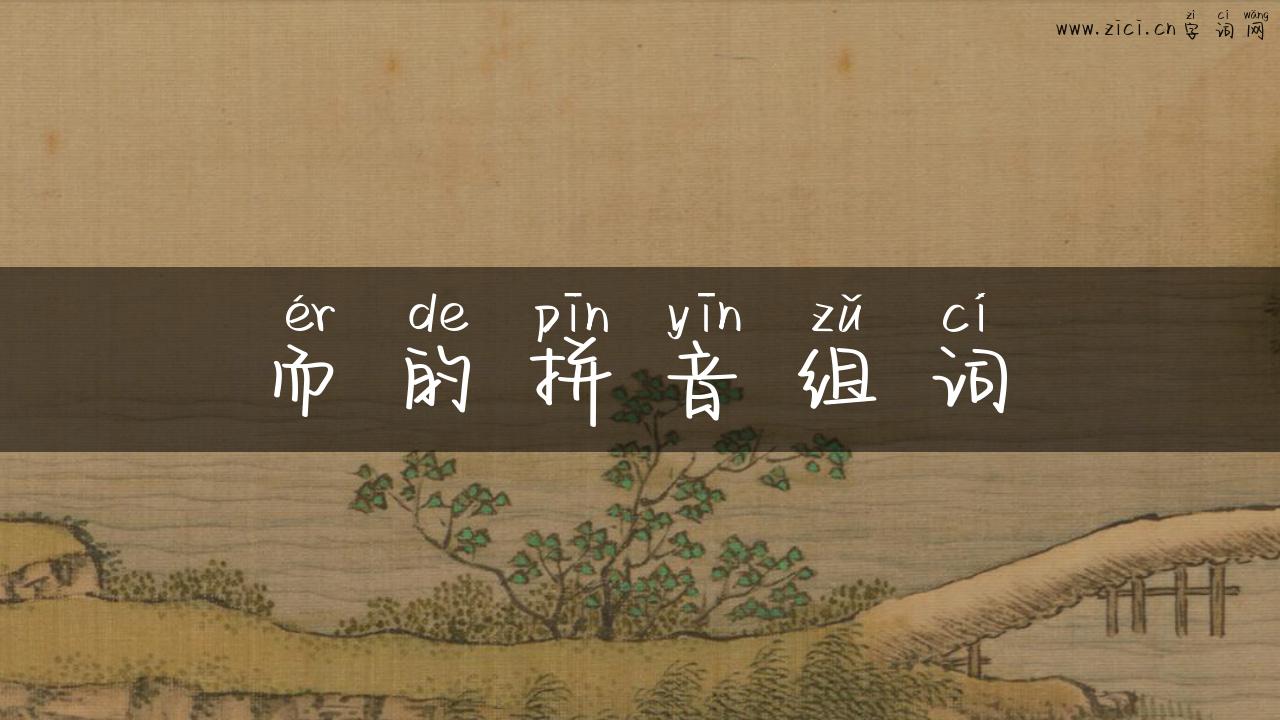 zì cí wǎng
www.zici.cn 字词网
ér de pīn yīn zǔ cí
而的拼音组词